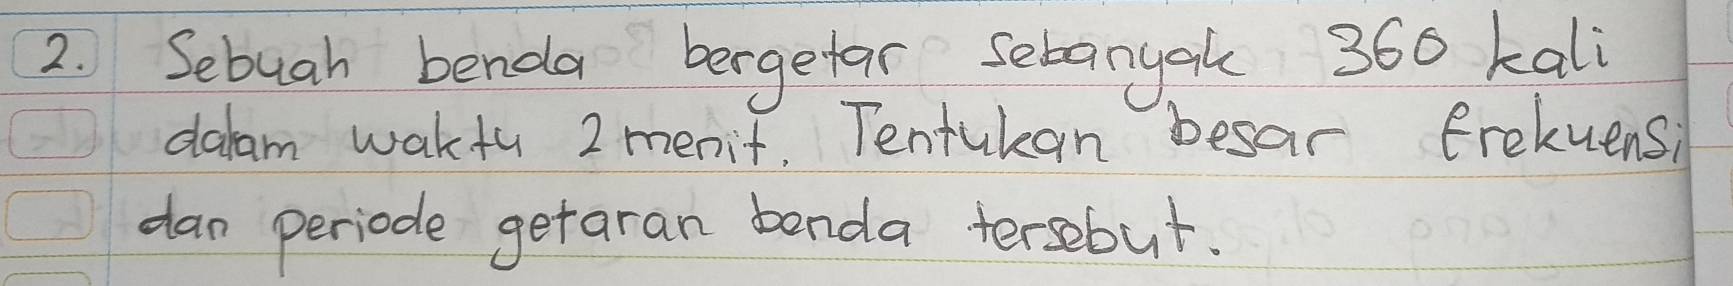 2. Sebuah benda bergetar sebanyak 360 kali
dalam waktu 2 menit. Tentukan besar frekuensi
dan periode getaran benda tersebut.